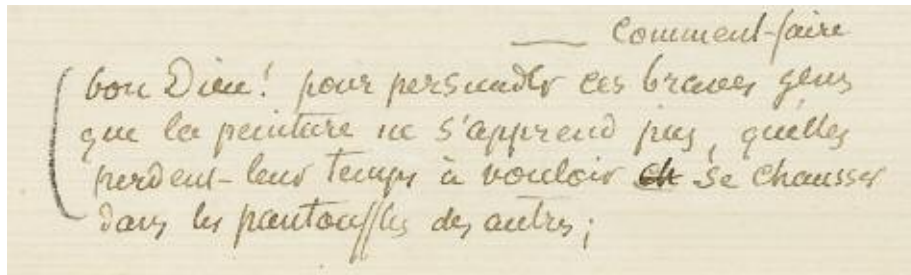 — Comment-faire
bon Dieu! pour persuader ces braves gens
que la peinture ne s'apprend pas, qu'elles
perdent-leur temps à vouloir ch se chausser
dans les pantouffles des autres;